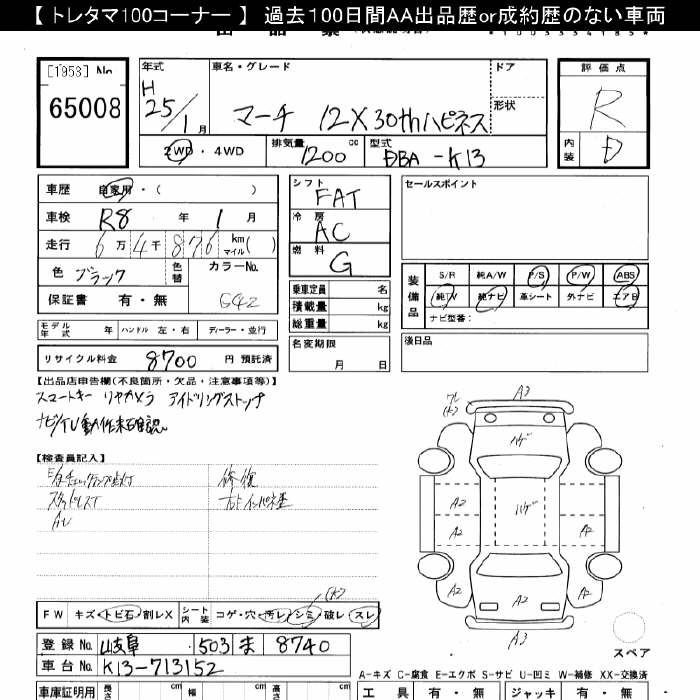 【 トレタマ100コーナー 】 過去100日間AA出品歴or成約歴のない車両
[1953] No
65008
年式
H
25/1月
車名・グレード
マーチ 12X 30thハピネス
ドア
形状
評価点
R
内装
D
2WD・4WD
排気量
1200 cc
型式
DBA-K13
車歴 自家用・( )
車検 R8 年 1 月
走行 6万4千876 km マイル( )
色 ブラック 色替 カラーNo.
保証書 有・無 G42
モデル年式 年 ハンドル 左・右 ディーラー・並行
リサイクル料金 8700 円 預託済
シフト
FAT
冷房
AC
燃料
G
乗車定員 名
積載量 kg
総重量 kg
名変期限
月 日
セールスポイント
装備品
S/R 純A/W P/S P/W ABS
純TV 純ナビ 革シート 外ナビ エアB
ナビ型番:
後日品
【出品店申告欄(不良箇所・欠品・注意事項等)】
スマートキー リヤカメラ アイドリングストップ
ナビ/TV動作未確認
【検査員記入】
修復
スタッドレスT
Aレ
A3
ワレ
(大)
ハゲ
ハゲ
A2
A2
A2
A2
A2
A2
A2
A3
スペア
FW キズ・トビ石・割レX シート内装 コゲ・穴・汚レ・シミ・破レ・スレ
(大)
登録No. 岐阜 503 ま 8740
車台No. K13-713152
A-キズ C-腐食 E-エクボ S-サビ U-凹ミ W-補修 XX-交換済
車庫証明用 長さ cm 幅 cm 高さ cm
工具 有・無 ジャッキ 有・無